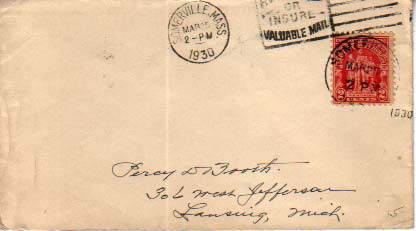 SOMERVILLE, MASS.
MAR
2-PM
1930
OR
INSURE
VALUABLE MAIL
MAR
2 PM
1930
Percy D Booth.
306 West Jefferson
Lansing, Mich.